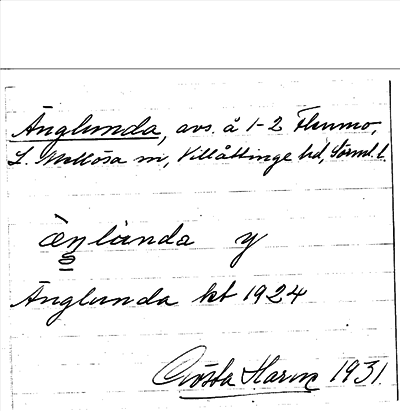 Änglunda, avs. å 1-2 Flenmo,
L. Mellösa sn, Villåttinge hd, Sörml. l.
æŋlùnda y
Änglunda kt 1924
Gösta Harm 1931